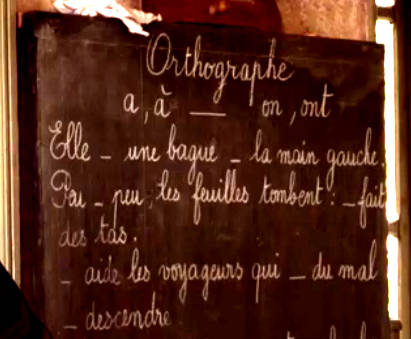 Orthographe
a, à __ on, ont
Elle _ une bague _ la main gauche.
Peu _ peu, les feuilles tombent : _ fait
des tas.
_ aide les voyageurs qui _ du mal
_ descendre